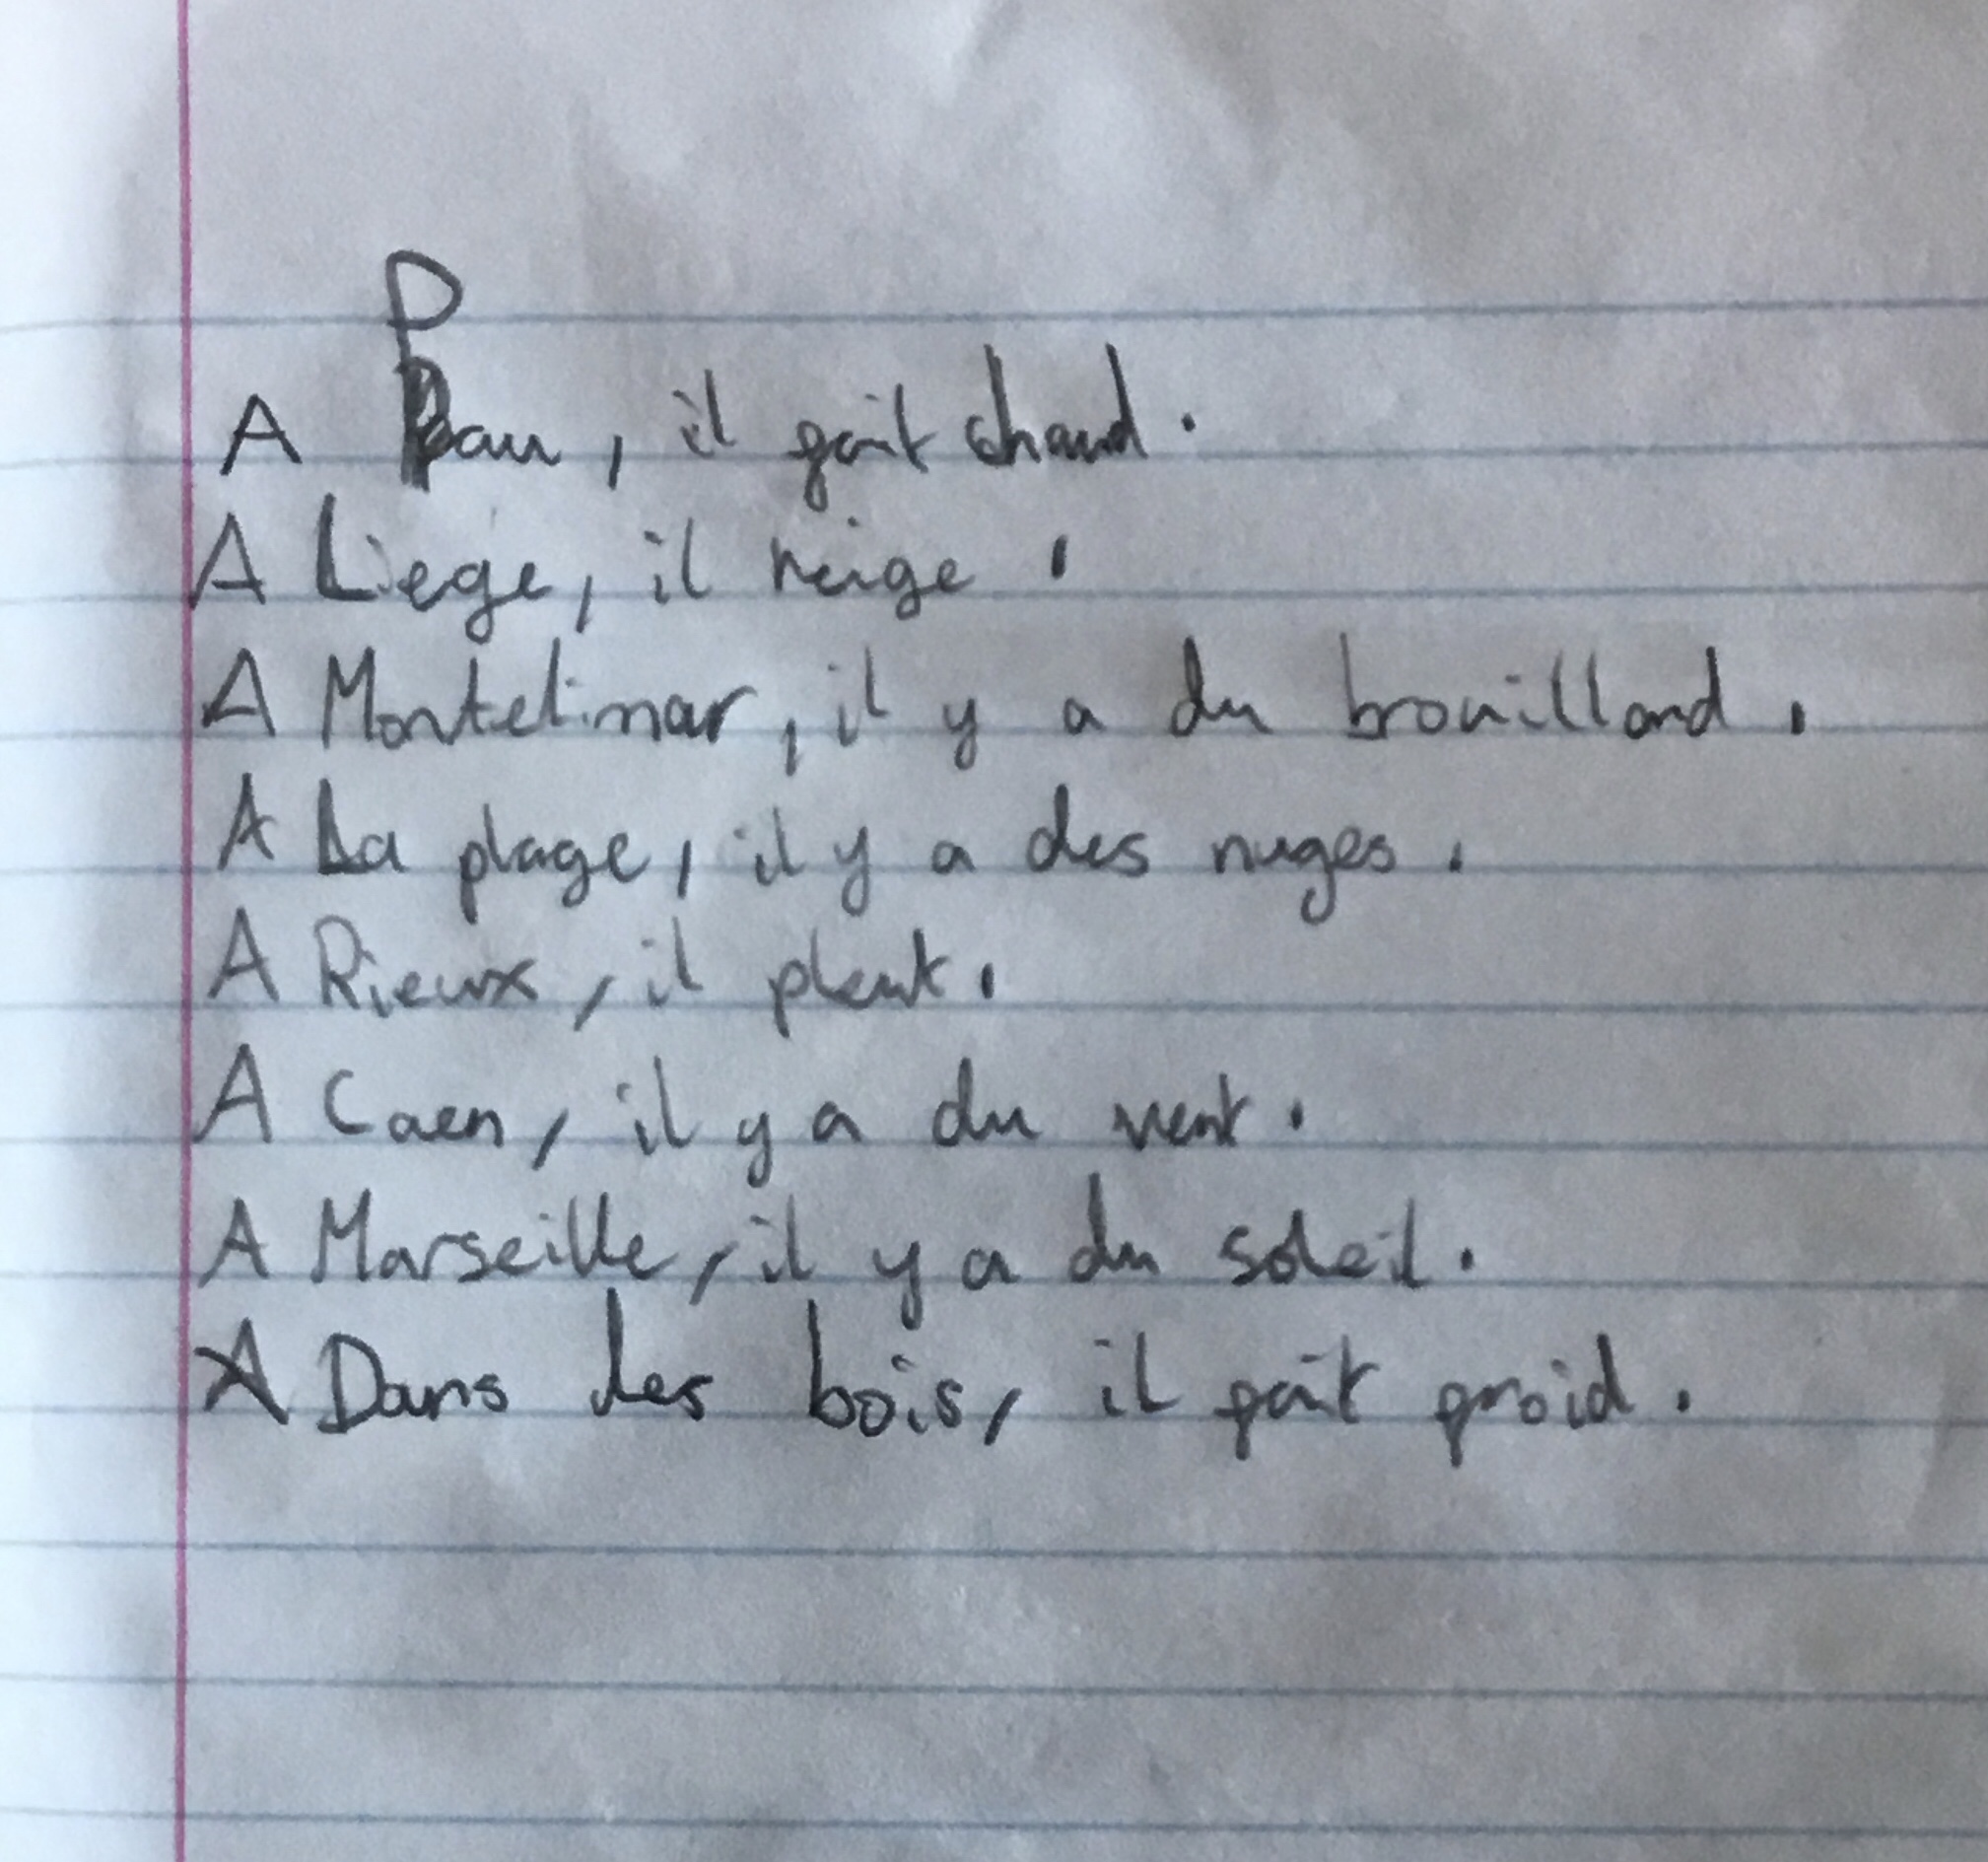 A Pau, il fait chaud.
A Liege, il neige.
A Montelimar, il y a du brouillard.
A La plage, il y a des nuges.
A Rieux, il pleut.
A Caen, il y a du vent.
A Marseille, il y a du soleil.
Dans les bois, il fait froid.